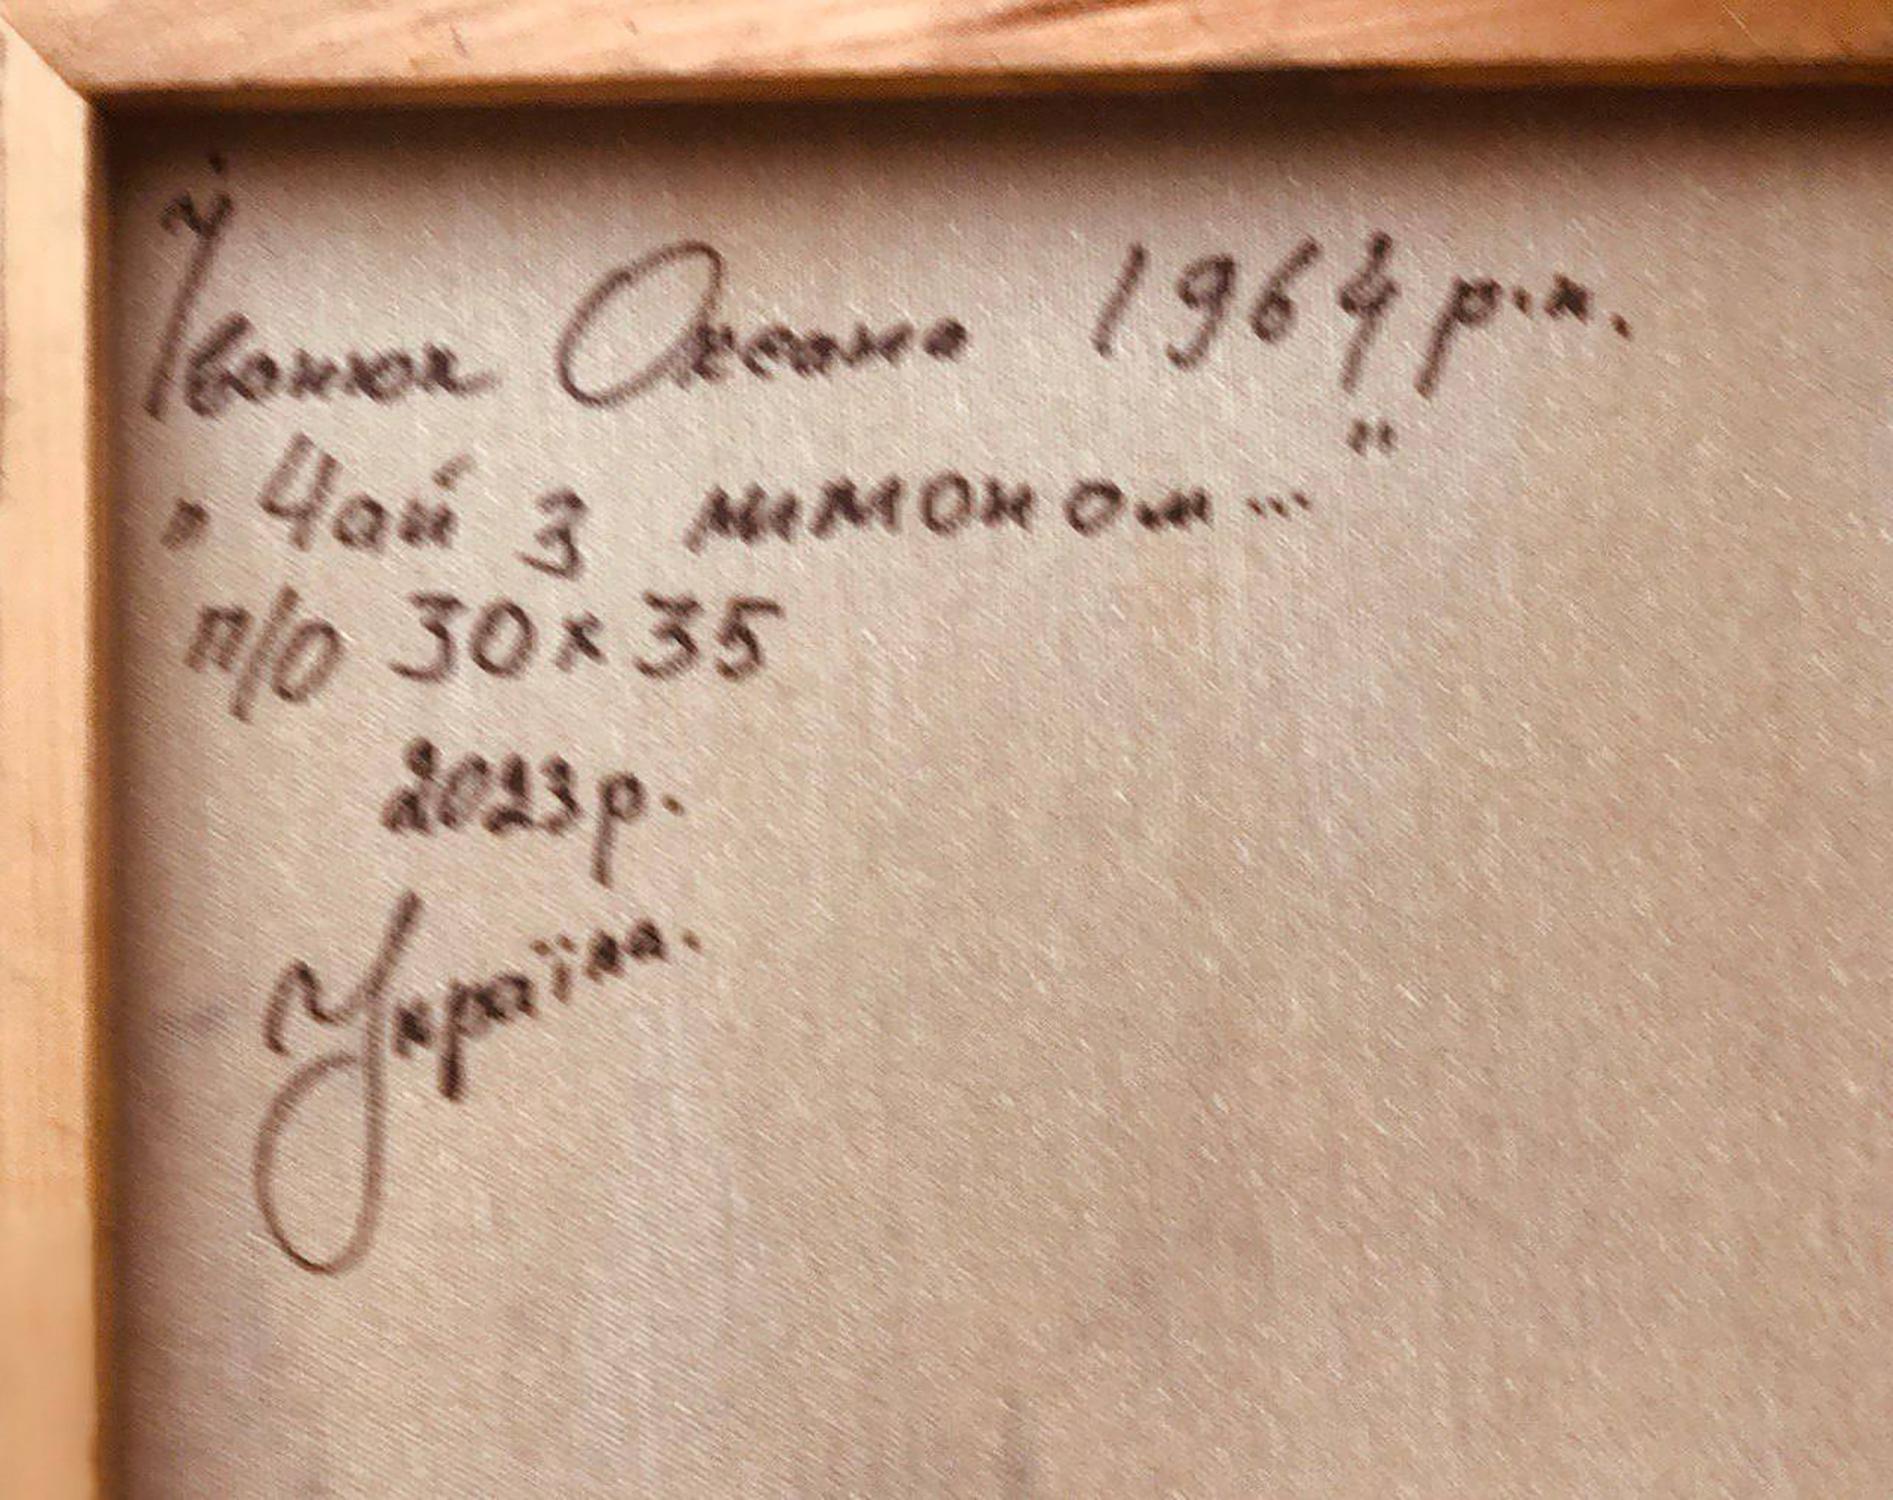 Іванюк Оксана 1964 р.н.
„Чай з лимоном..."
п/о 30х35
2023р.
Україна.